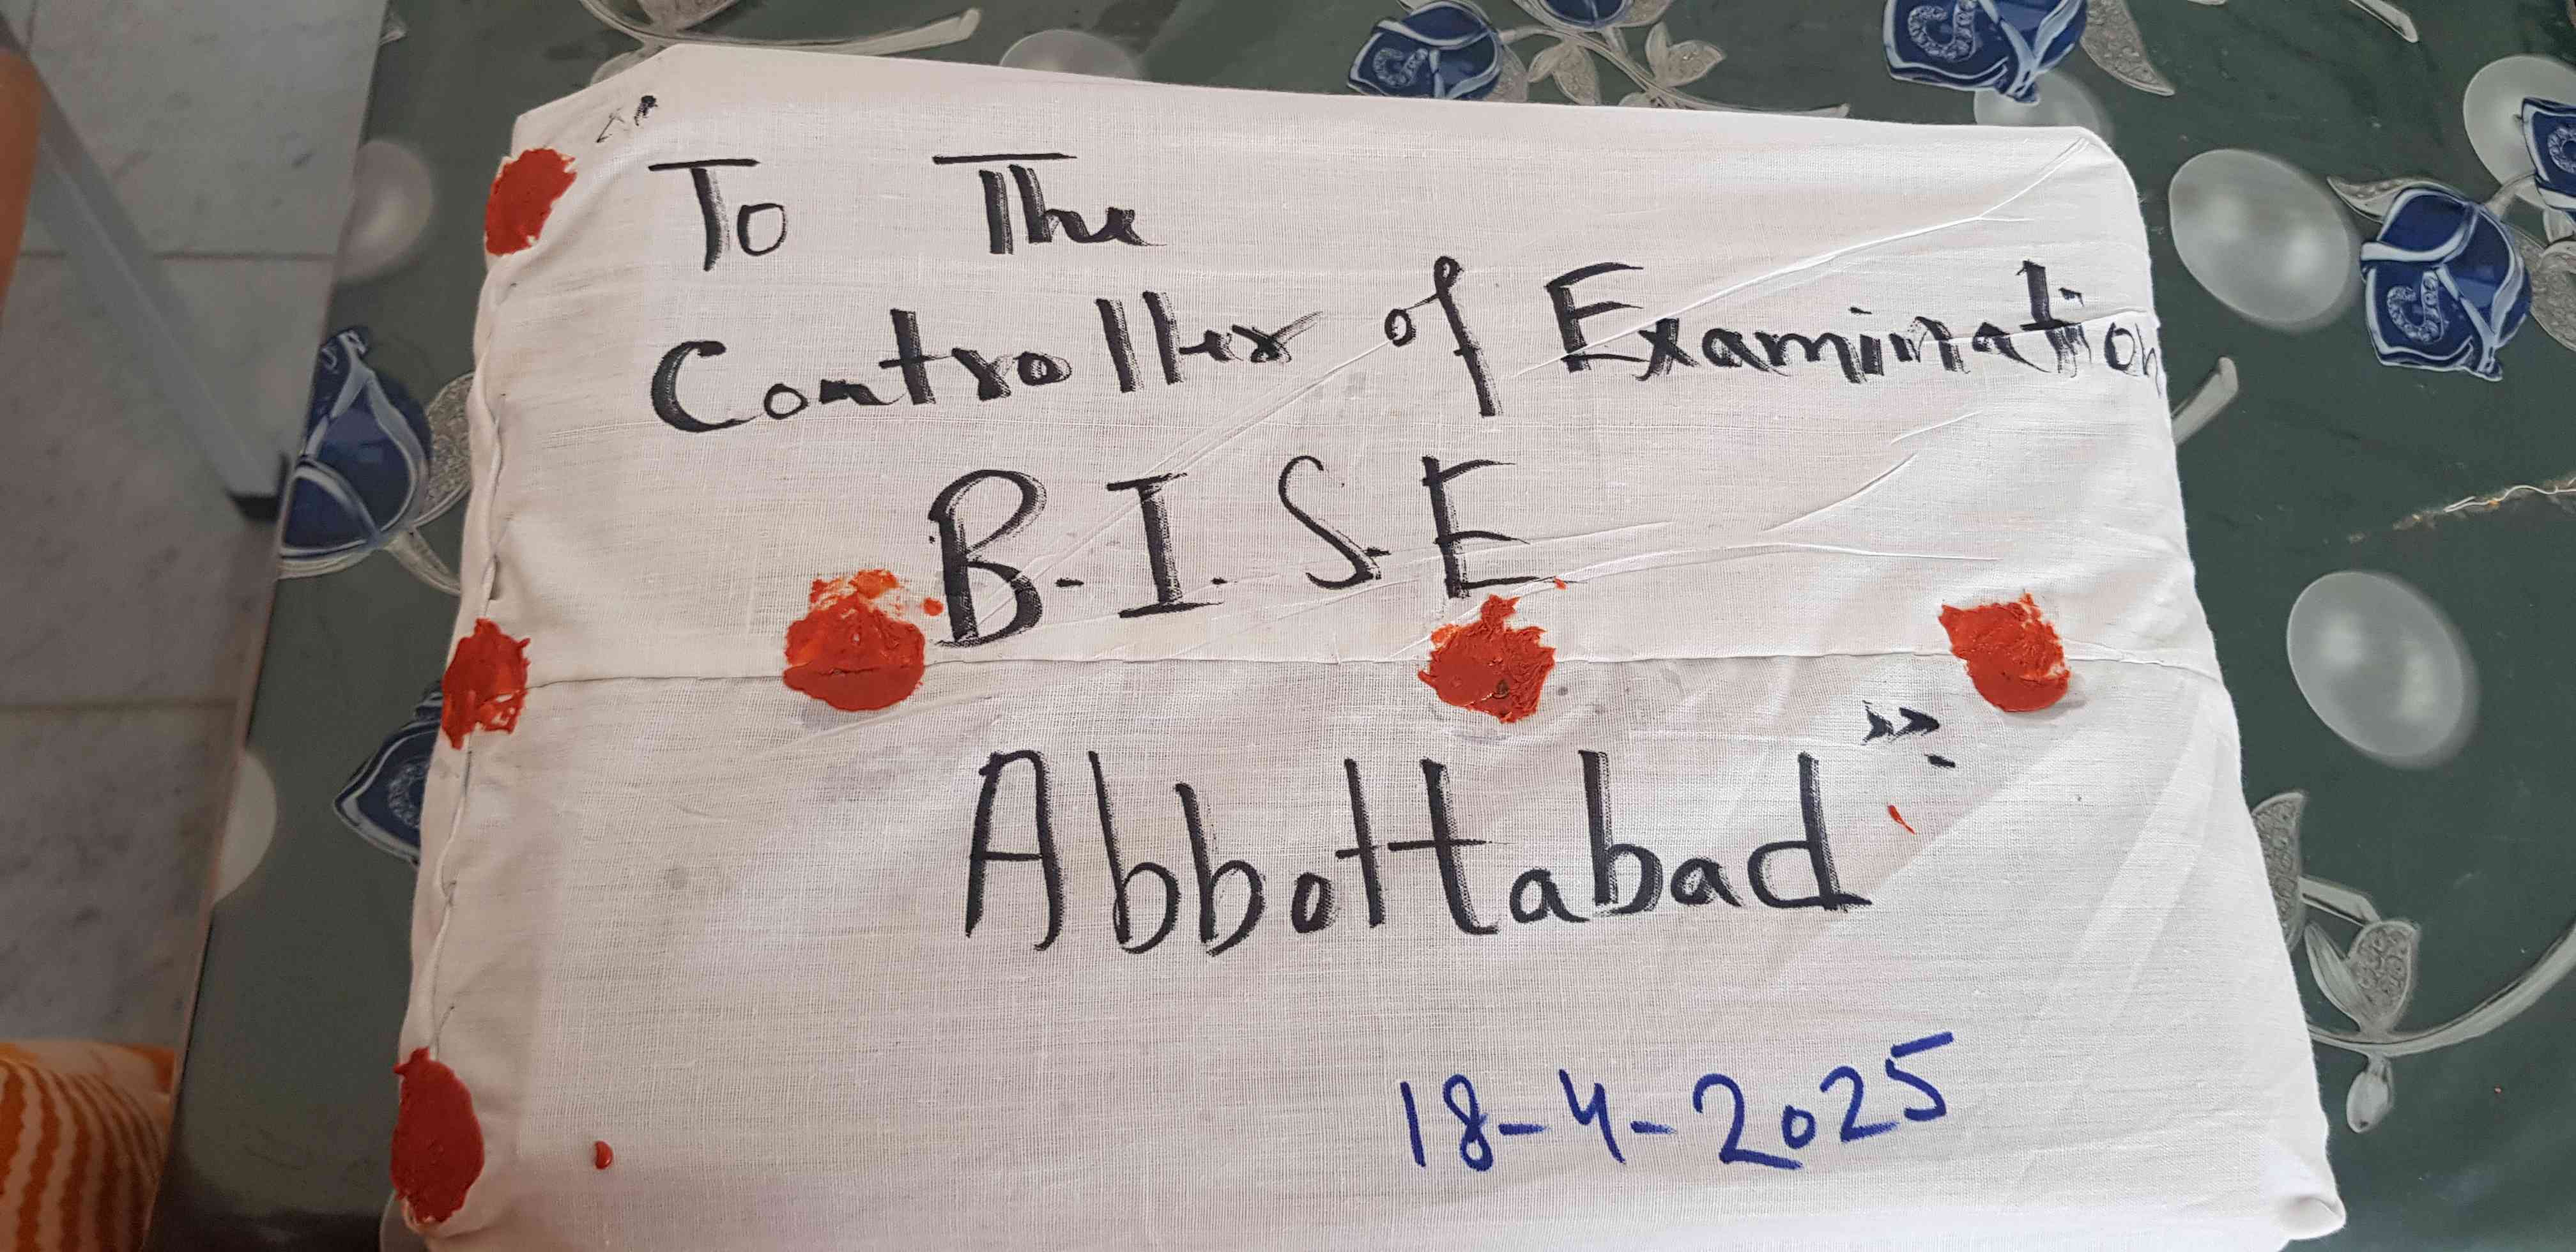 To The
Controller of Examination
B.I.S.E
Abbottabad"
18-4-2025